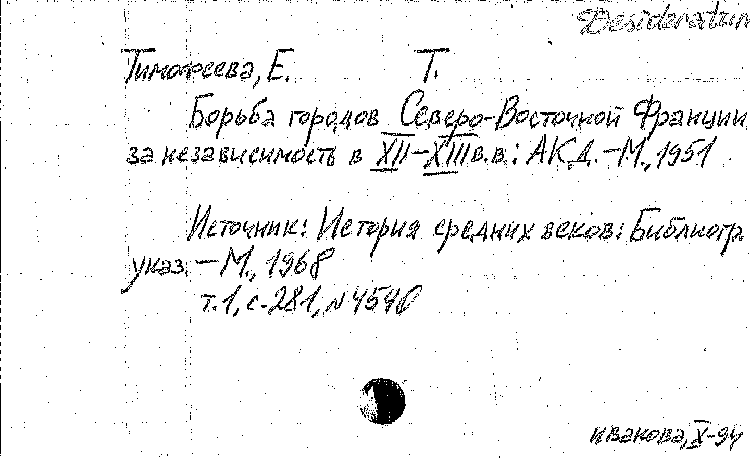 Desideratum
Тимофеева, Е. Т.
Борьба городов Северо-Восточной Франции
за независимость в XII-XIII в.в.: АКД. - М., 1951
Источник: История средних веков: Библиогр.
указ. - М., 1968
т.1, с-281, N 4540
Ивакова, X-94